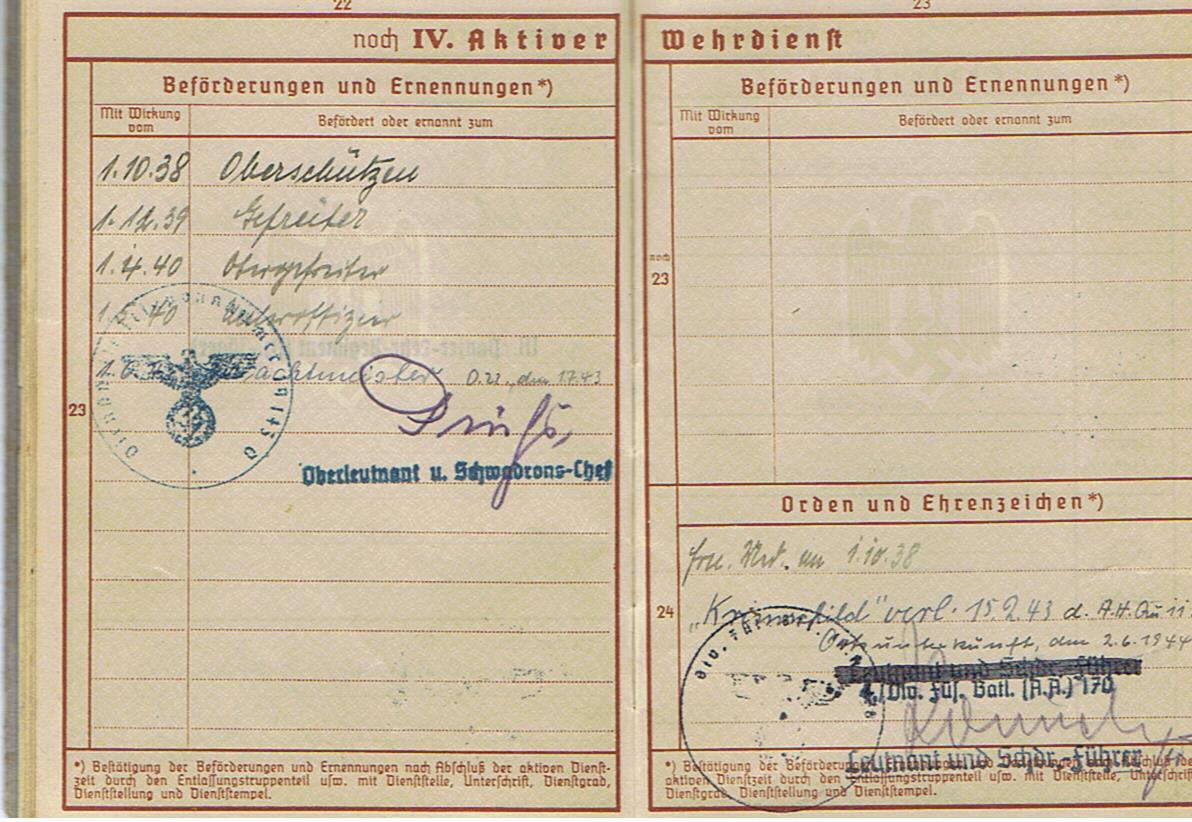 22
noch IV. Aktiver
Beförderungen und Ernennungen*)
Mit Wirkung vom
Befördert oder ernannt zum
1.10.38 Oberschützen
1.12.39 Gefreiter
1.4.40 Obergefreiter
1.5.40 Unteroffizier
Wachtmeister O.U., den 1.7.43
23
Oberleutnant u. Schwadrons-Chef
*) Bestätigung der Beförderungen und Ernennungen nach Abschluß der aktiven Dienst-
zeit durch den Entlassungstruppenteil usw. mit Dienststelle, Unterschrift, Dienstgrad,
Dienststellung und Dienststempel.
23
Wehrdienst
Beförderungen und Ernennungen*)
Mit Wirkung vom
Befördert oder ernannt zum
noch
23
Orden und Ehrenzeichen*)
1.10.38
24
„Krimschild" verl. 15.2.43 d. A.H.Qu
Ortsunterkunft, den 2.6.1944
Leutnant und Schdr.-Führer
4./Div. Füs. Batl. (A.A.) 170
Leutnant und Schdr.-Führer
*) Bestätigung der Beförderungen
aktiven Dienstzeit durch den Entlassungstruppenteil usw. mit Dienststelle, Unterschrift,
Dienstgrad, Dienststellung und Dienststempel.